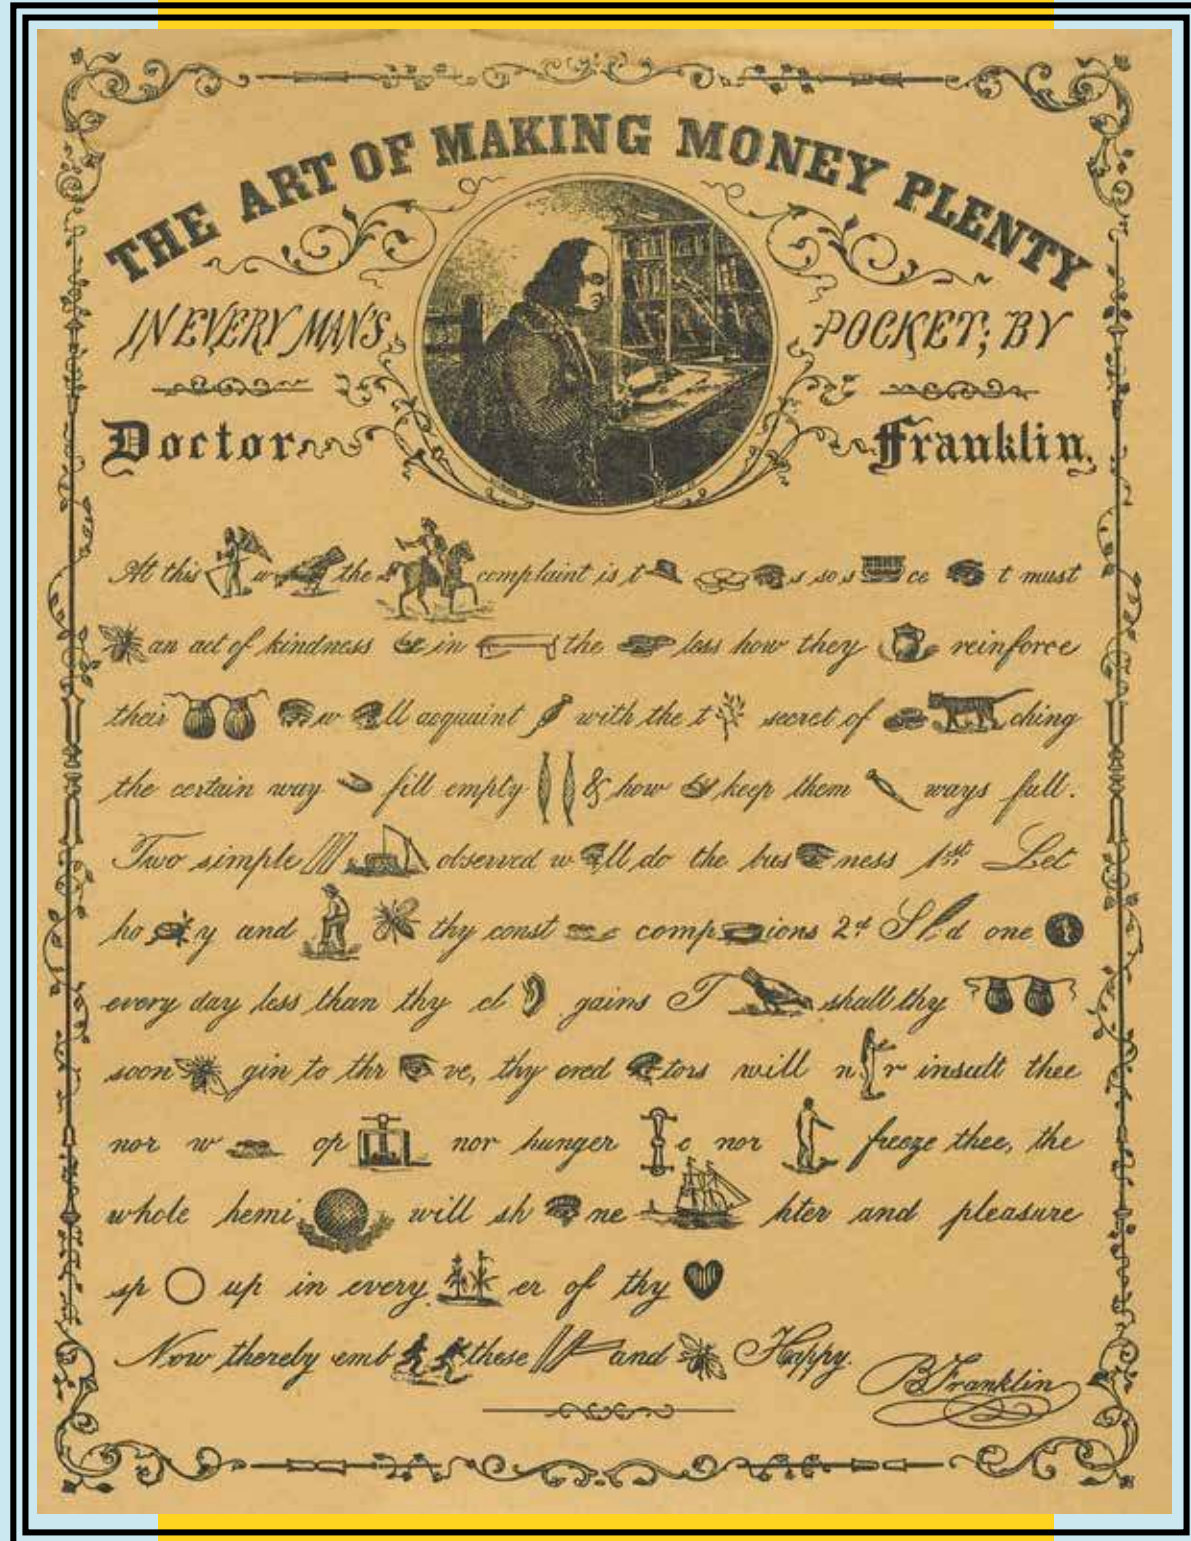 THE ART OF MAKING MONEY PLENTY
IN EVERY MAN'S POCKET; BY
Doctor Franklin,
At this w the complaint is t s so s ce t must
an act of kindness in the less how they reinforce
their w ll acquaint with the t secret of ching
the certain way fill empty & how keep them ways full.
Two simple observed w ll do the bus ness 1st Let
ho y and thy const comp ions 2d d one
every day less than thy cl gains T shall thy
soon gin to thr ve, thy cred tors will n r insult thee
nor w op nor hunger e nor freeze thee, the
whole hemi will sh ne hter and pleasure
sp up in every er of thy
Now thereby emb these and Happy.
B Franklin